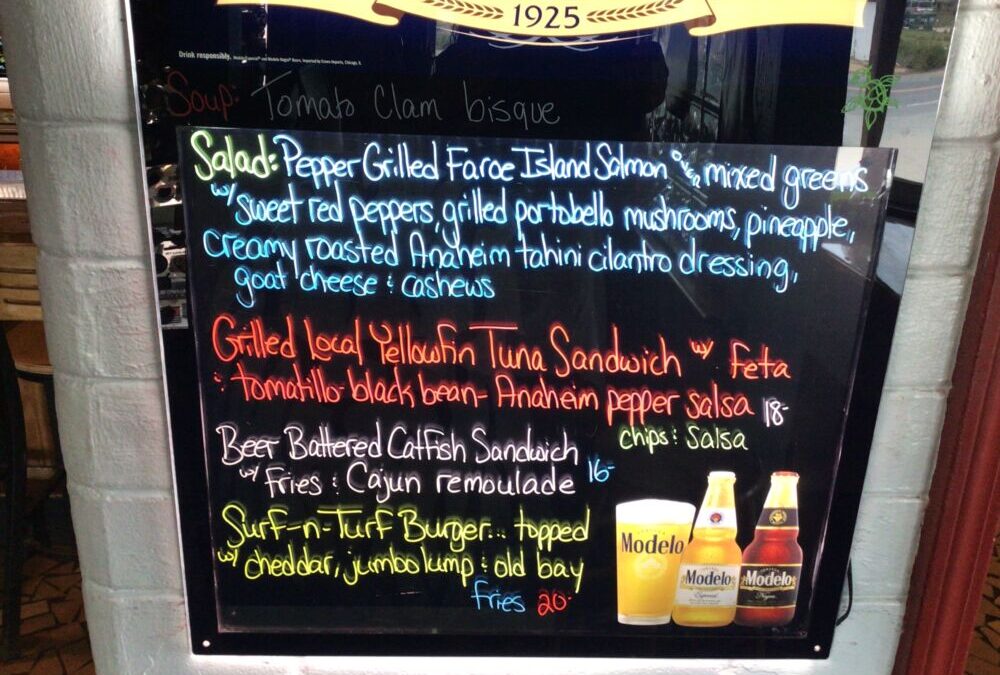 1925
Drink responsibly.
Soup: Tomato Clam bisque
Salad: Pepper Grilled Faroe Island Salmon over mixed greens
w/ sweet red peppers, grilled portobello mushrooms, pineapple,
creamy roasted Anaheim tahini cilantro dressing,
goat cheese & cashews
Grilled Local Yellowfin Tuna Sandwich w/ Feta
& tomatillo-black bean-Anaheim pepper salsa 18-
chips & Salsa
Beer Battered Catfish Sandwich
w/ Fries & Cajun remoulade 16-
Surf-n-Turf Burger... topped
w/ cheddar, jumbo lump & old bay
Fries 20-
Modelo
Modelo
Especial
Modelo
Negra